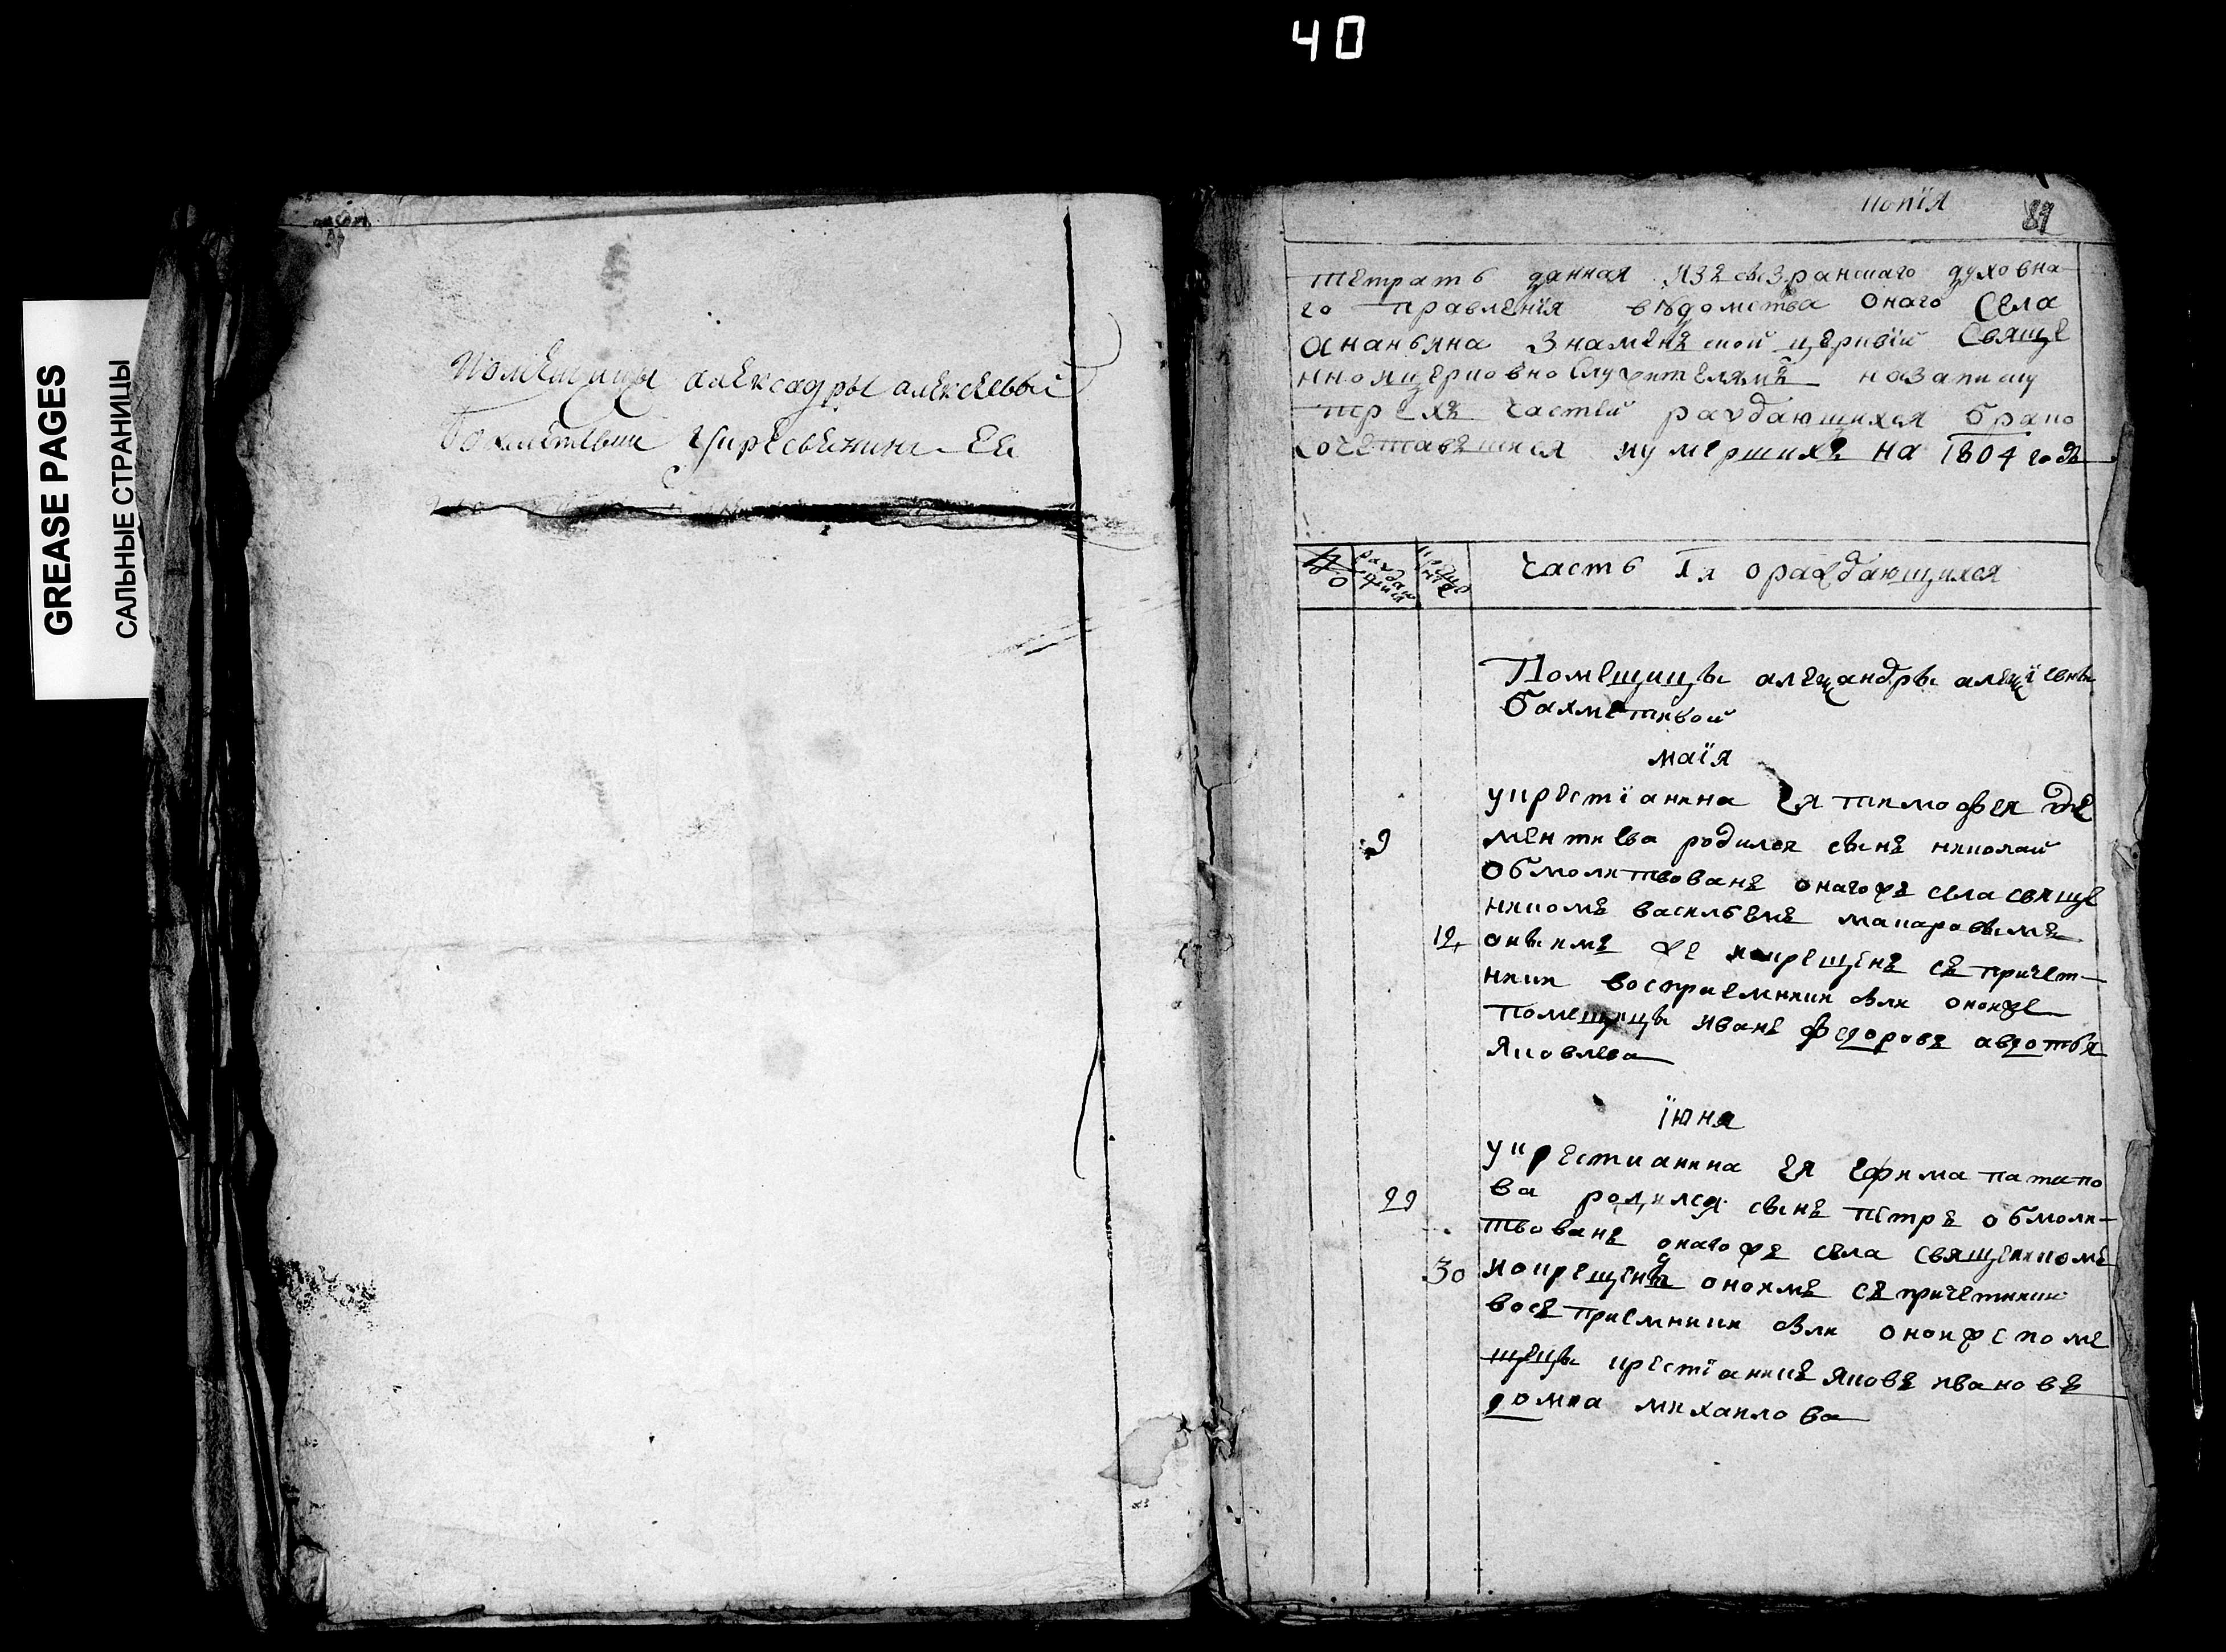 40
GREASE PAGES
САЛЬНЫЕ СТРАНИЦЫ
помещицы алексадры алексевый
Бахметевый укресьянина Ее
копїя
89
тетрать данная изъ сызранскаго духовна
го правленїя вѣдомства онаго села
ананьяна Знаменъской церквїи Свяще
нноицерковно служителямъ назаписку
трехъ частей рождающихся брако
сочетавъшихся иумершихъ на 1804 годъ
№ рождающися крщенїе
часть Iя орождающихся
Помещицы алеѯандры алеѯїевны
бахметивой
маїя
укрестїанина Ея тимофея де
9 ментиева родился сынъ николай
обмолитвованъ онагожъ села свяще
никомъ васильемъ макаровымъ
12 онымъ же икрещенъ съ причет-
ники восприемники были оноиже
помещицы иванъ федоровъ авдотья
яковлева
їюня
укрестианина ея ефима патапо
29 ва родился сынъ петръ обмоли-
твованъ онагожъ села священикомъ
30 икрещенъ оноимъ съ причетники
восъприемники были оноиже поме
щицы крестїаникъ яковъ ивановъ
домна михаилова